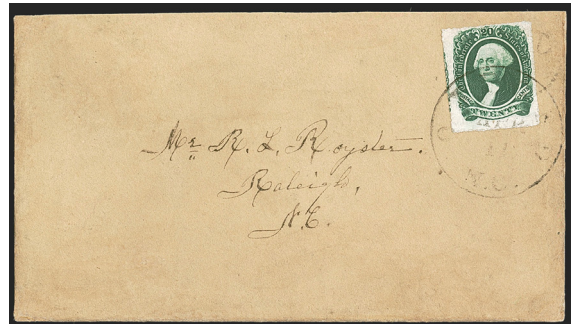 20
TWENTY
N.C.
Mr. R. L. Royster.
Raleigh,
N.C.